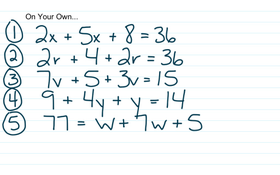 On Your Own...
① 2x + 5x + 8 = 36
② 2r + 4 + 2r = 36
③ 7v + 5 + 3v = 15
④ 9 + 4y + y = 14
⑤ 77 = w + 7w + 5